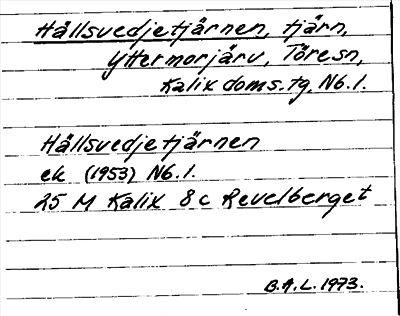 Hållsvedjetjärnen, tjärn,
Yttermorjärv, Töresn,
Kalix doms.tg, Nb.l.
Hållsvedjetjärnen
ek (1953) Nb.l.
25 M Kalix 8c Revelberget
B.A.L. 1973.